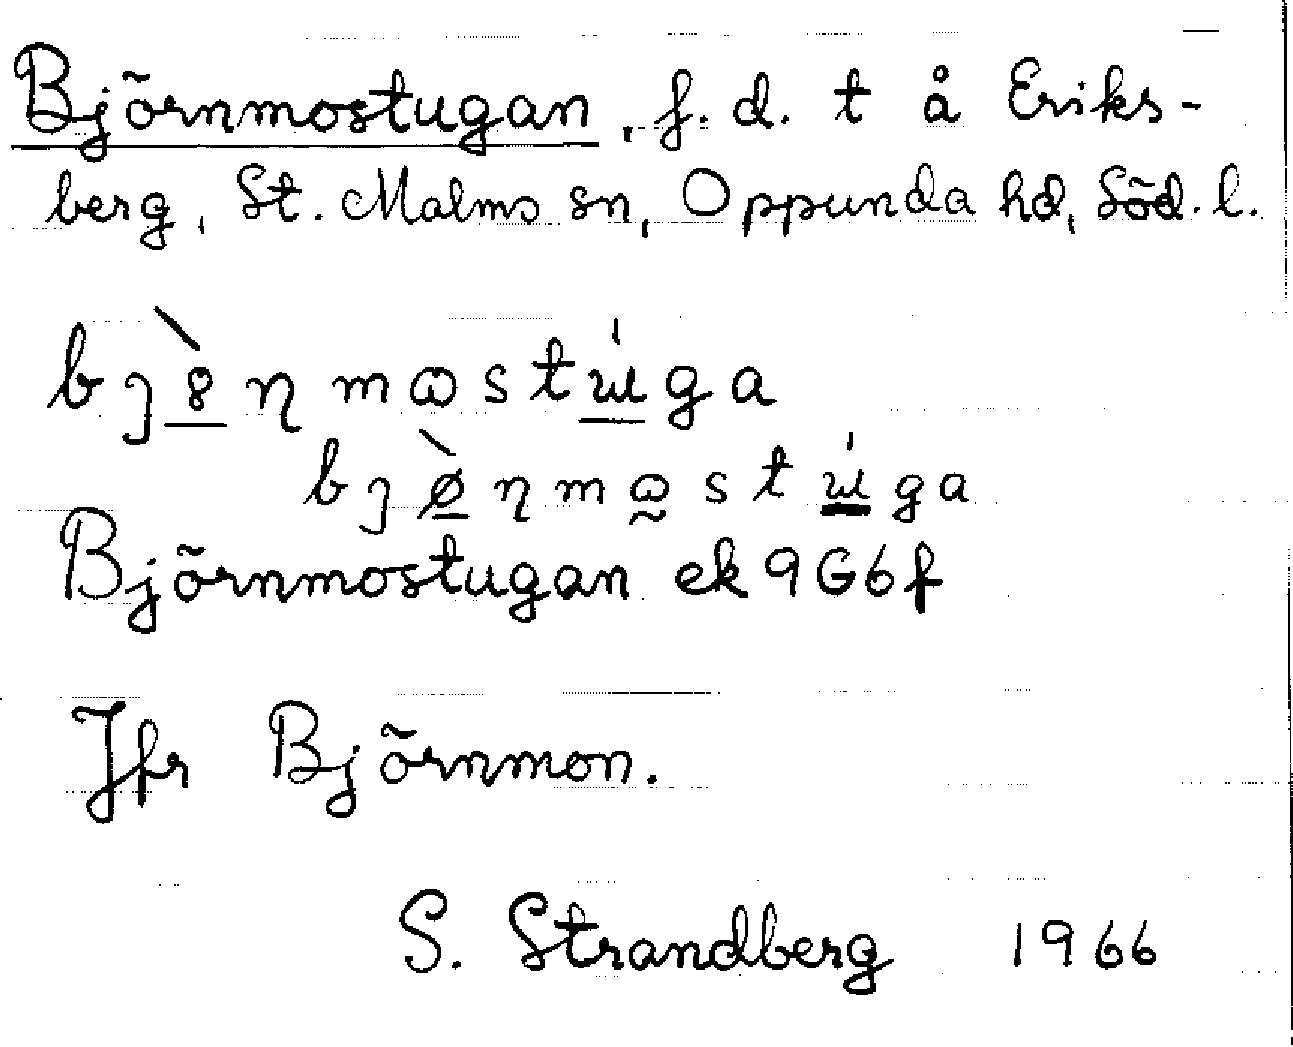 Björnmostugan, f.d. t å Eriks-
berg, St. Malms sn, Oppunda hd, Söd. l.
bȷ8̲̀ŋmɷstɯ̲́ga
bȷø̲̀ŋmɷ̰stɯ̲́ga
Björnmostugan ek 9G6f
Jfr Björnmon.
S. Strandberg 1966